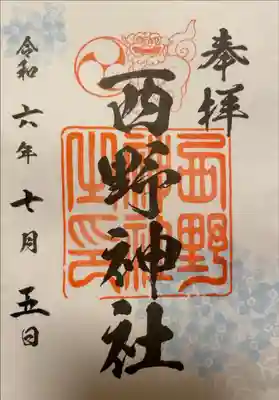 奉拝
西野神社
西野神社之印
令和六年七月五日